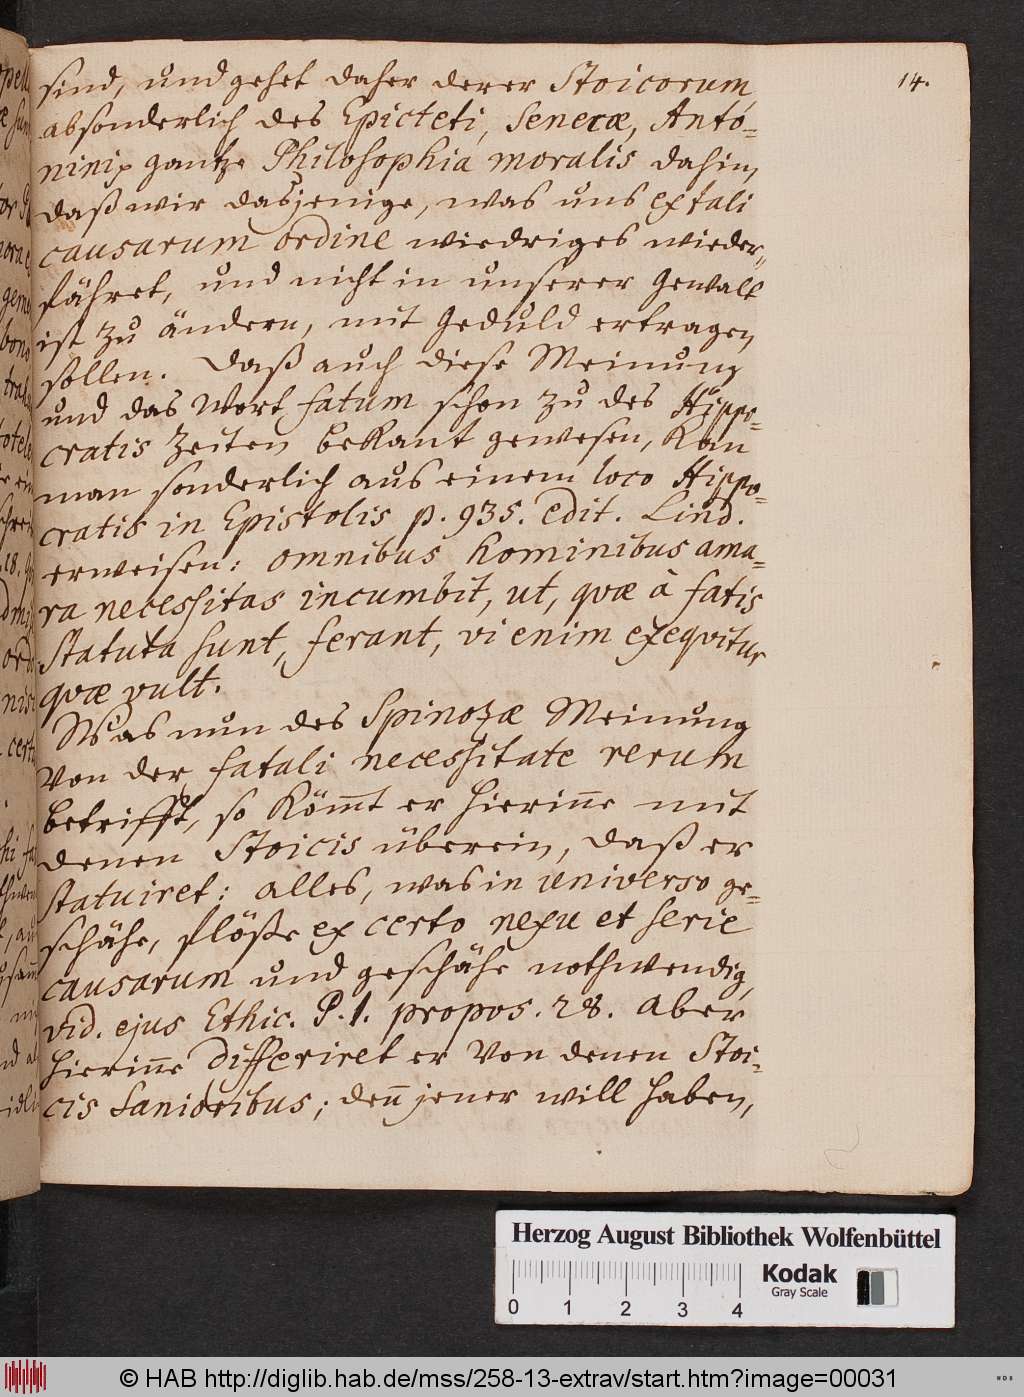 14.
sind, und gehet daher derer Stoicorum,
absonderlich des Epicteti, Senecæ, Anto-
nini gantze Philosophia moralis dahin,
daß wir dasjenige, was uns ex tali
causarum ordine wiedriges wieder-
fähret, und nicht in unserer Gewalt
ist zu ändern, mit Geduld ertragen
sollen. Daß auch diese Meinung
und das Wort fatum schon zu des Hippo-
cratis Zeiten bekant gewesen, kan
man sonderlich aus einem loco Hippo-
cratis in Epistolis p. 935. edit. Lind.
erweisen: omnibus hominibus ama-
ra necessitas incumbit, ut, qvæ à fatis
statuta sunt, ferant, vi enim exeqvitur
qvæ vult.
Was nun des Spinozæ Meinung
von der fatali necessitate rerum
betrifft, so kömt er hierinne mit
denen Stoicis überein, daß er
statuiret: alles, was in universo ge-
schähe, flösse ex certo nexu et serie
causarum und geschähe nothwendig,
vid. ejus Ethic. P. 1. propos. 28. Aber
hierinne differiret er von denen Stoi-
cis Sanioribus; den jener will haben,
Herzog August Bibliothek Wolfenbüttel
Kodak
Gray Scale
0 1 2 3 4
© HAB http://diglib.hab.de/mss/258-13-extrav/start.htm?image=00031